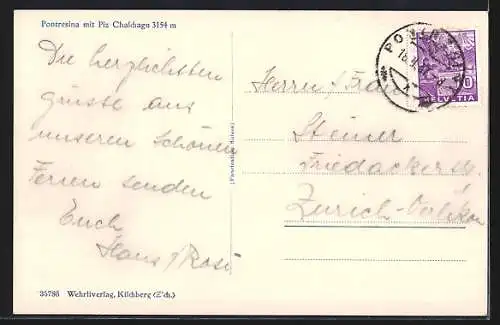 Pontresina mit Piz Chalchagn 3154 m
Die herzlichsten
grüsse aus
unseren schönen
Ferien senden
Euch
Hans / Rosi
35786 Wehrliverlag, Kilchberg (Z'ch.)
PONTRESINA
HELVETIA
Herrn / Frau
Steiner
Friedackerstr.
Zürich-Oerlikon